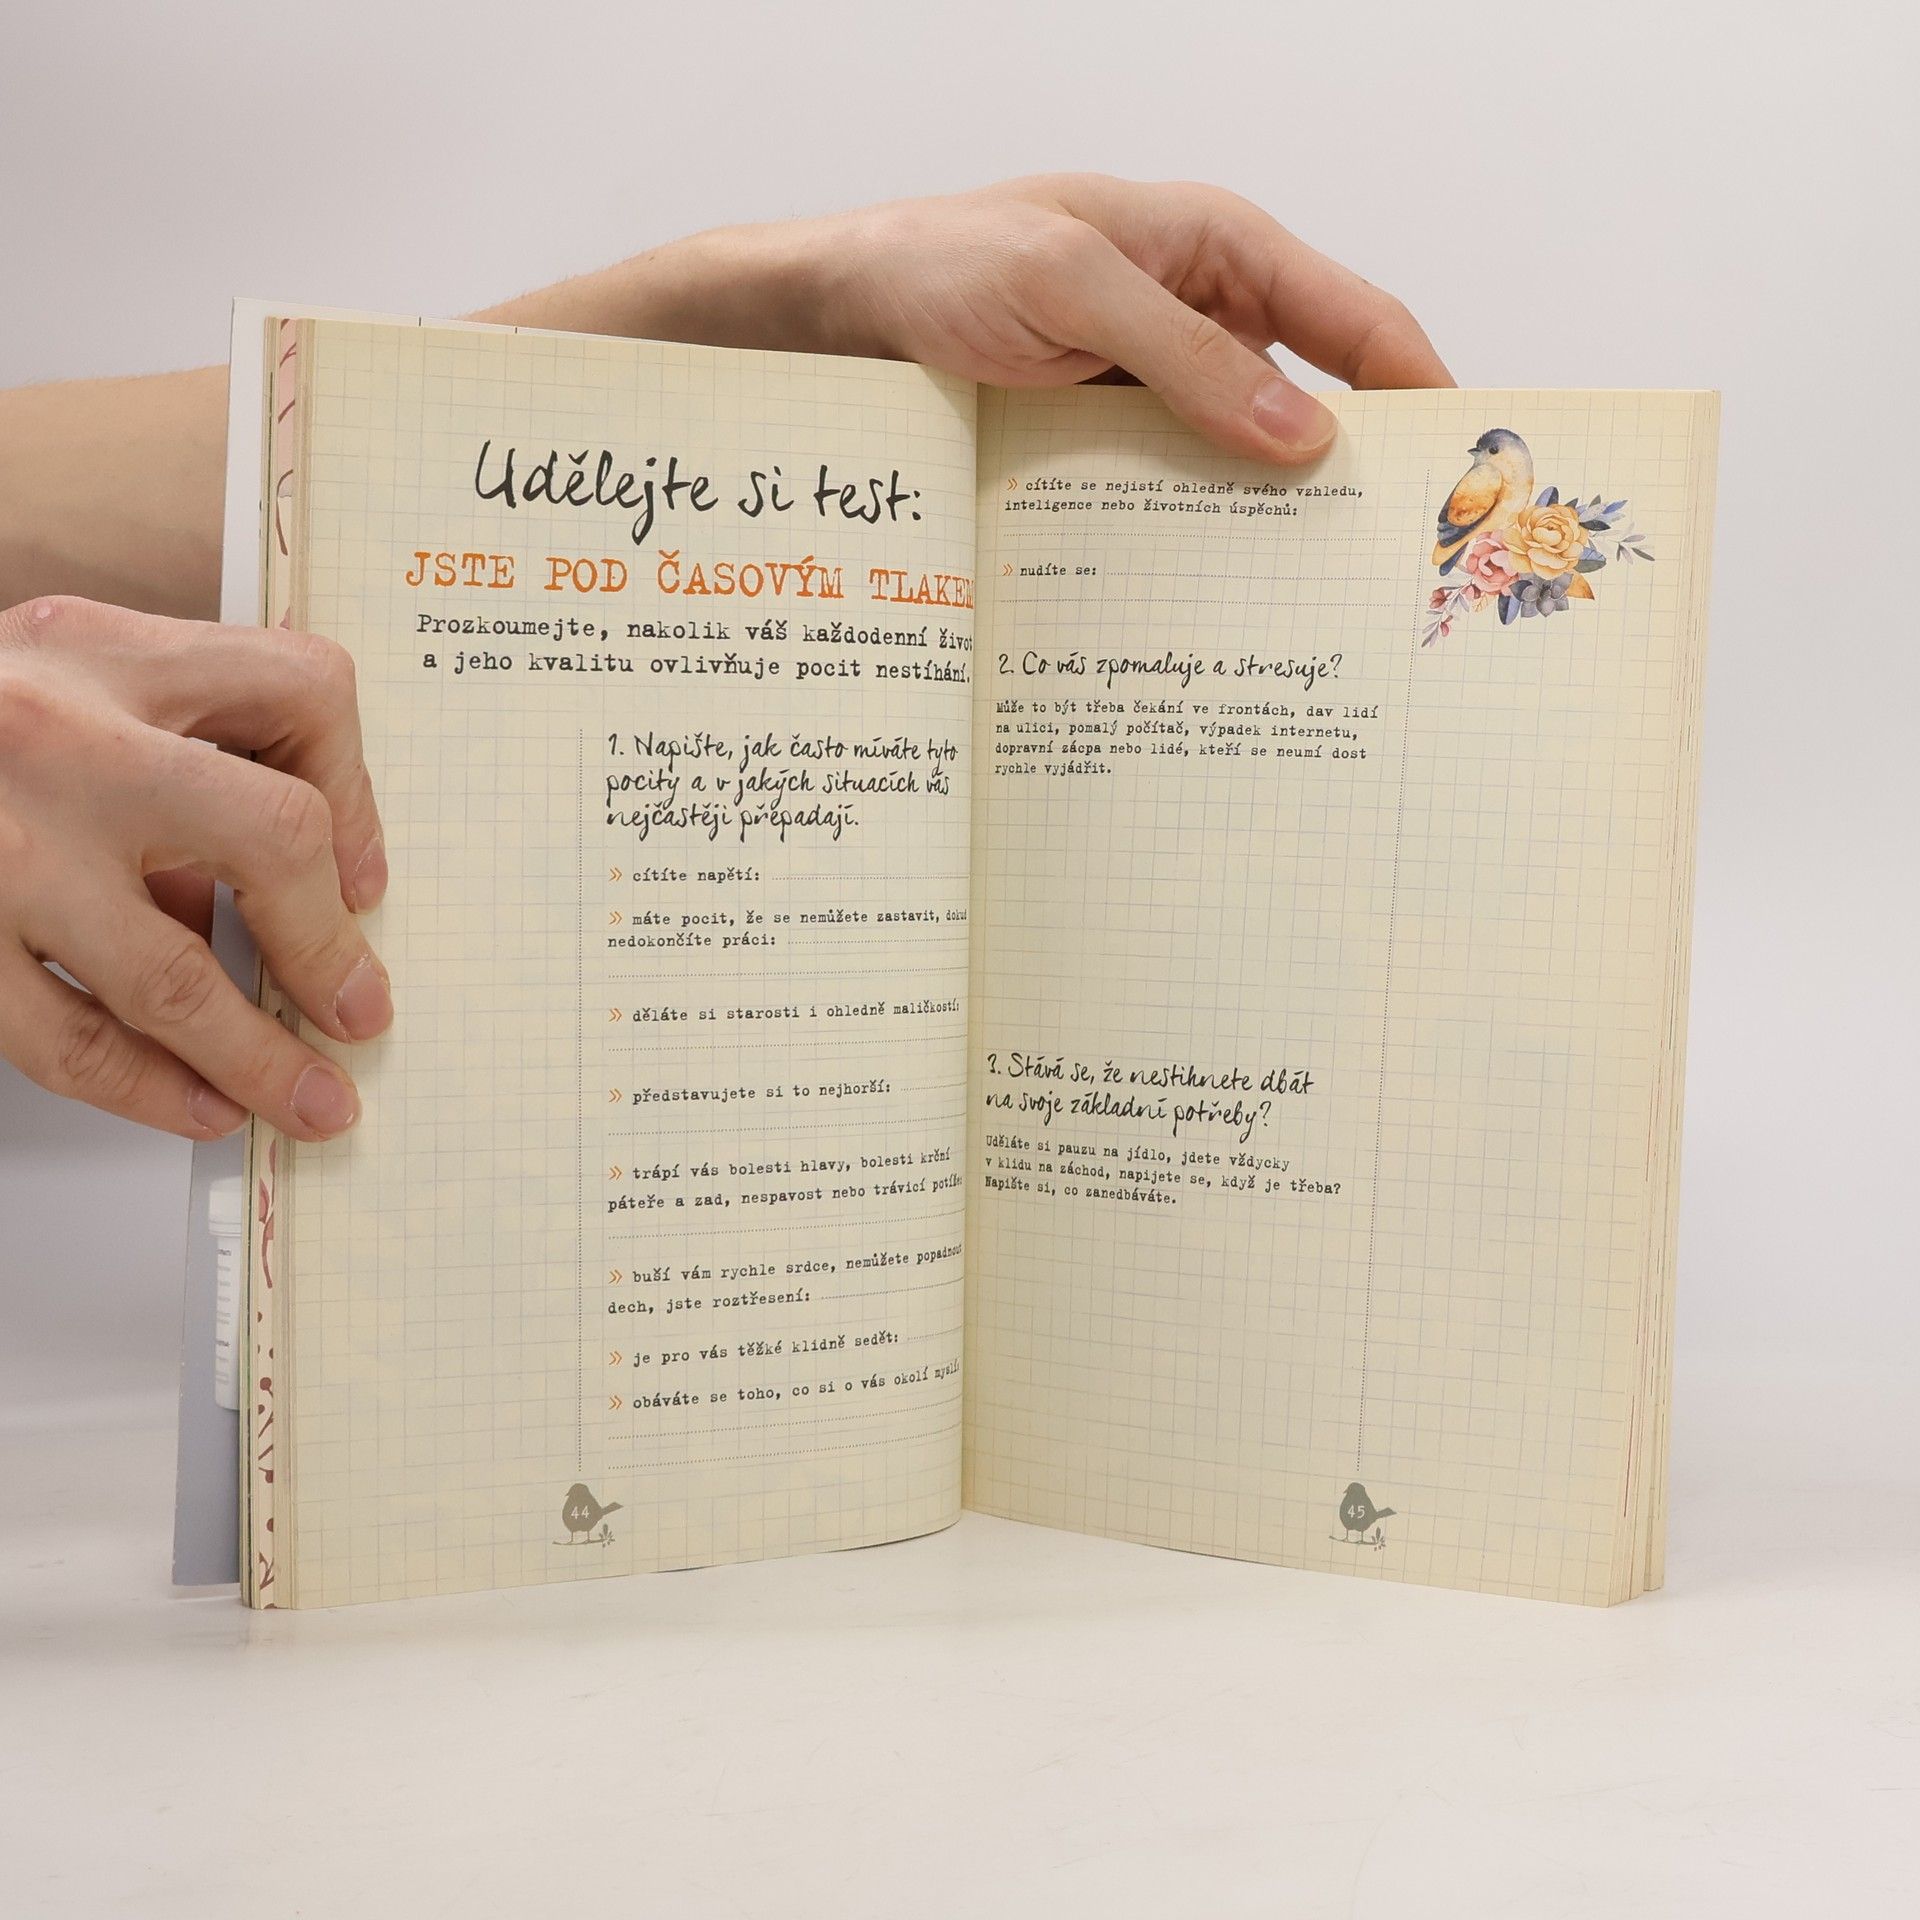 Udělejte si test:
JSTE POD ČASOVÝM TLAKEM
Prozkoumejte, nakolik váš každodenní život
a jeho kvalitu ovlivňuje pocit nestíhání.
1. Napište, jak často míváte tyto
pocity a v jakých situacích vás
nejčastěji přepadají.
» cítíte napětí:
» máte pocit, že se nemůžete zastavit, dokud
nedokončíte práci:
» děláte si starosti i ohledně maličkostí:
» představujete si to nejhorší:
» trápí vás bolesti hlavy, bolesti krční
páteře a zad, nespavost nebo trávicí potíže:
» buší vám rychle srdce, nemůžete popadnout
dech, jste roztřesení:
» je pro vás těžké klidně sedět:
» obáváte se toho, co si o vás okolí myslí:
44
» cítíte se nejistí ohledně svého vzhledu,
inteligence nebo životních úspěchů:
» nudíte se:
2. Co vás zpomaluje a stresuje?
Může to být třeba čekání ve frontách, dav lidí
na ulici, pomalý počítač, výpadek internetu,
dopravní zácpa nebo lidé, kteří se neumí dost
rychle vyjádřit.
3. Stává se, že nestihnete dbát
na svoje základní potřeby?
Uděláte si pauzu na jídlo, jdete vždycky
v klidu na záchod, napijete se, když je třeba?
Napište si, co zanedbáváte.
45